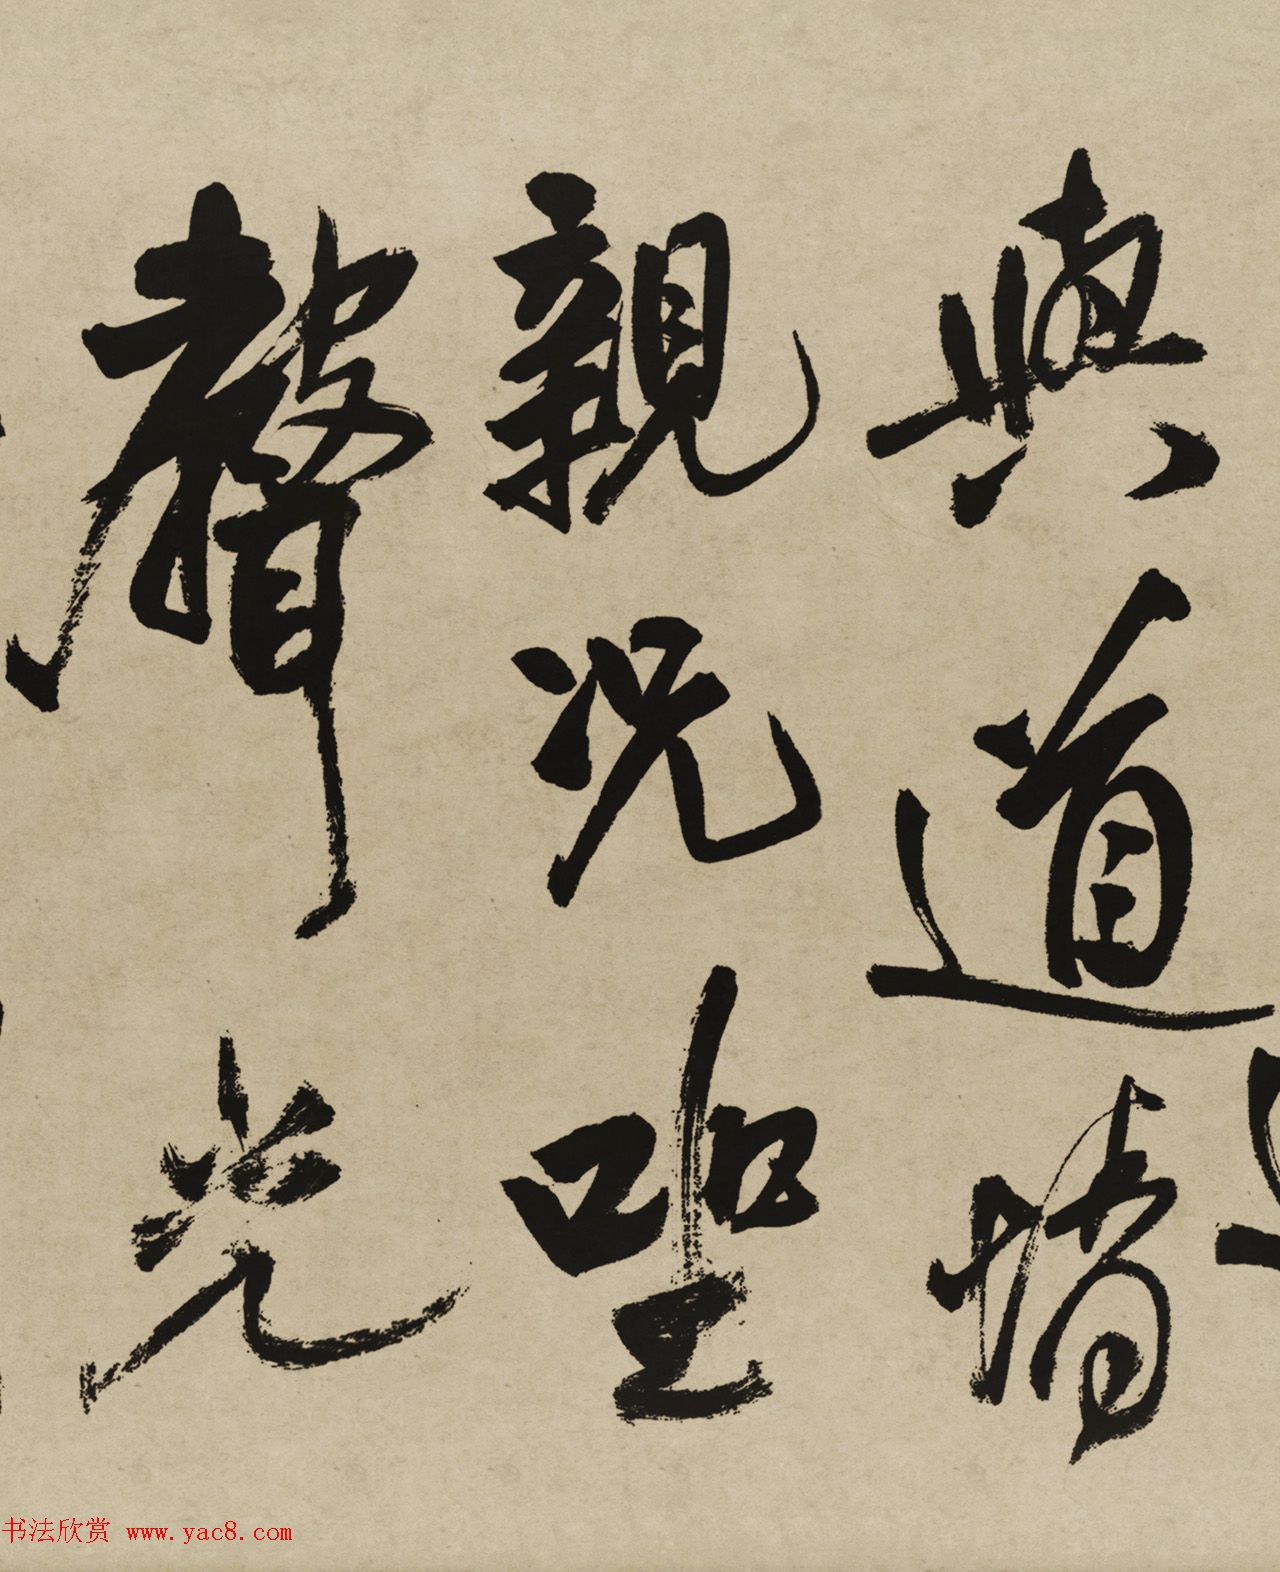 與道情
親況坐
聲光
书法欣赏 www.yac8.com